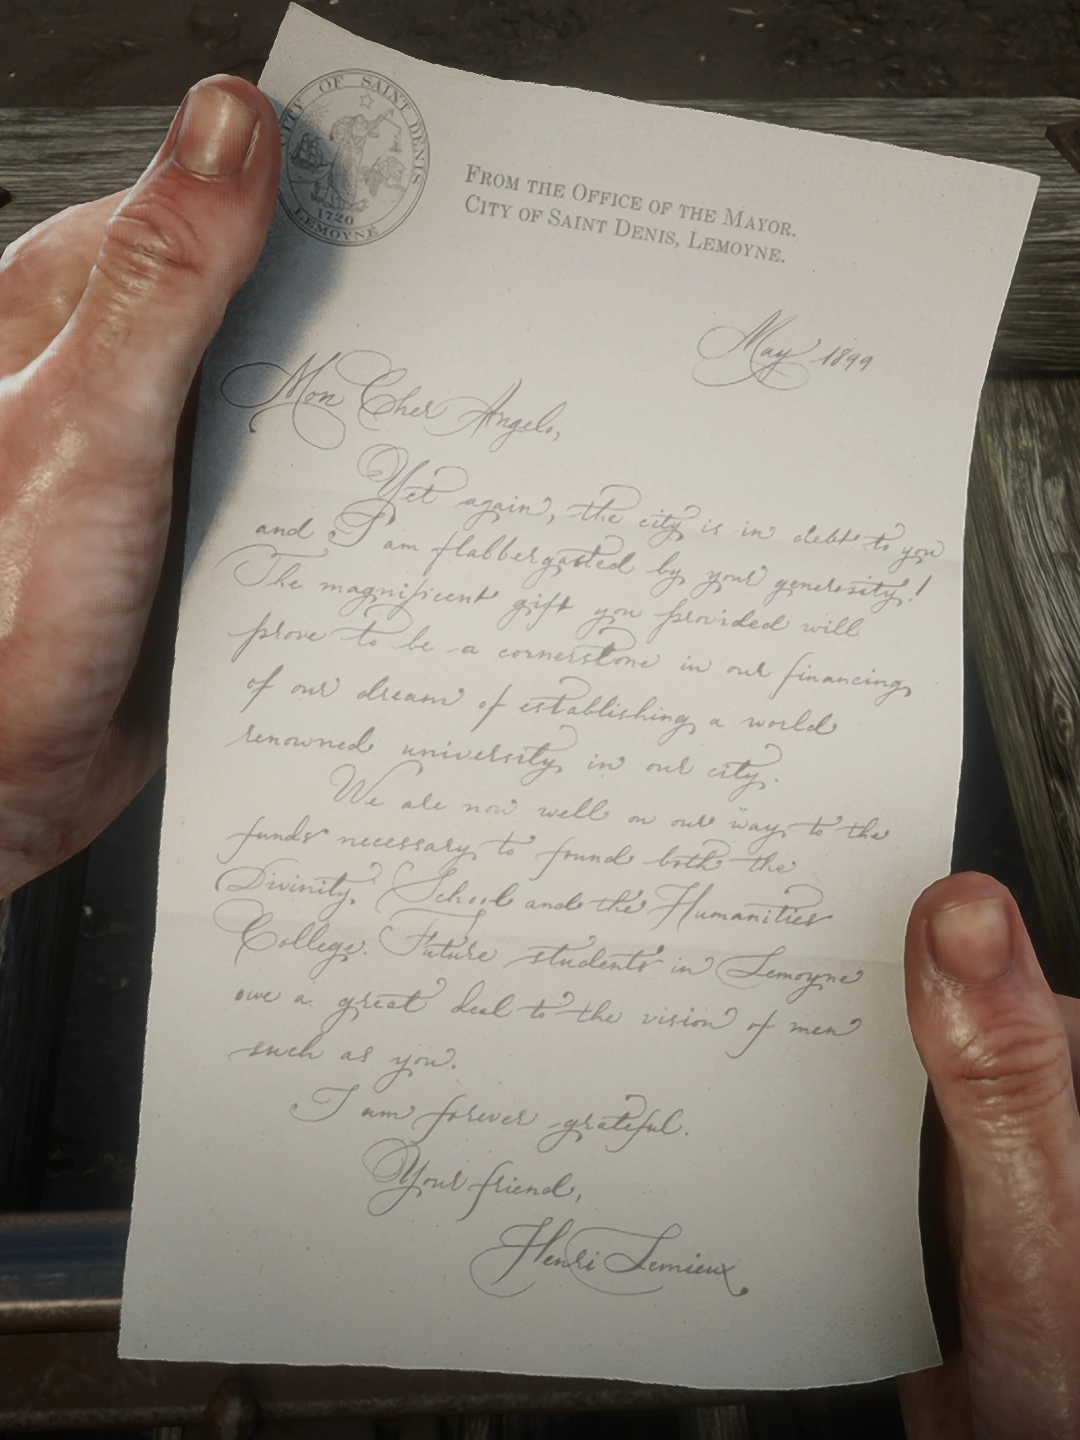 CITY OF SAINT DENIS
1720
LEMOYNE
FROM THE OFFICE OF THE MAYOR.
CITY OF SAINT DENIS, LEMOYNE.
May 1899
Mon Cher Angelo,
Yet again, the city is in debt to you
and I am flabbergasted by your generosity!
The magnificent gift you provided will
prove to be a cornerstone in our financing
of our dream of establishing a world
renowned university in our city.
We are now well on our way to the
funds necessary to found both the
Divinity School and the Humanities
College. Future students in Lemoyne
owe a great deal to the vision of men
such as you.
I am forever grateful.
Your friend,
Henri Lemieux